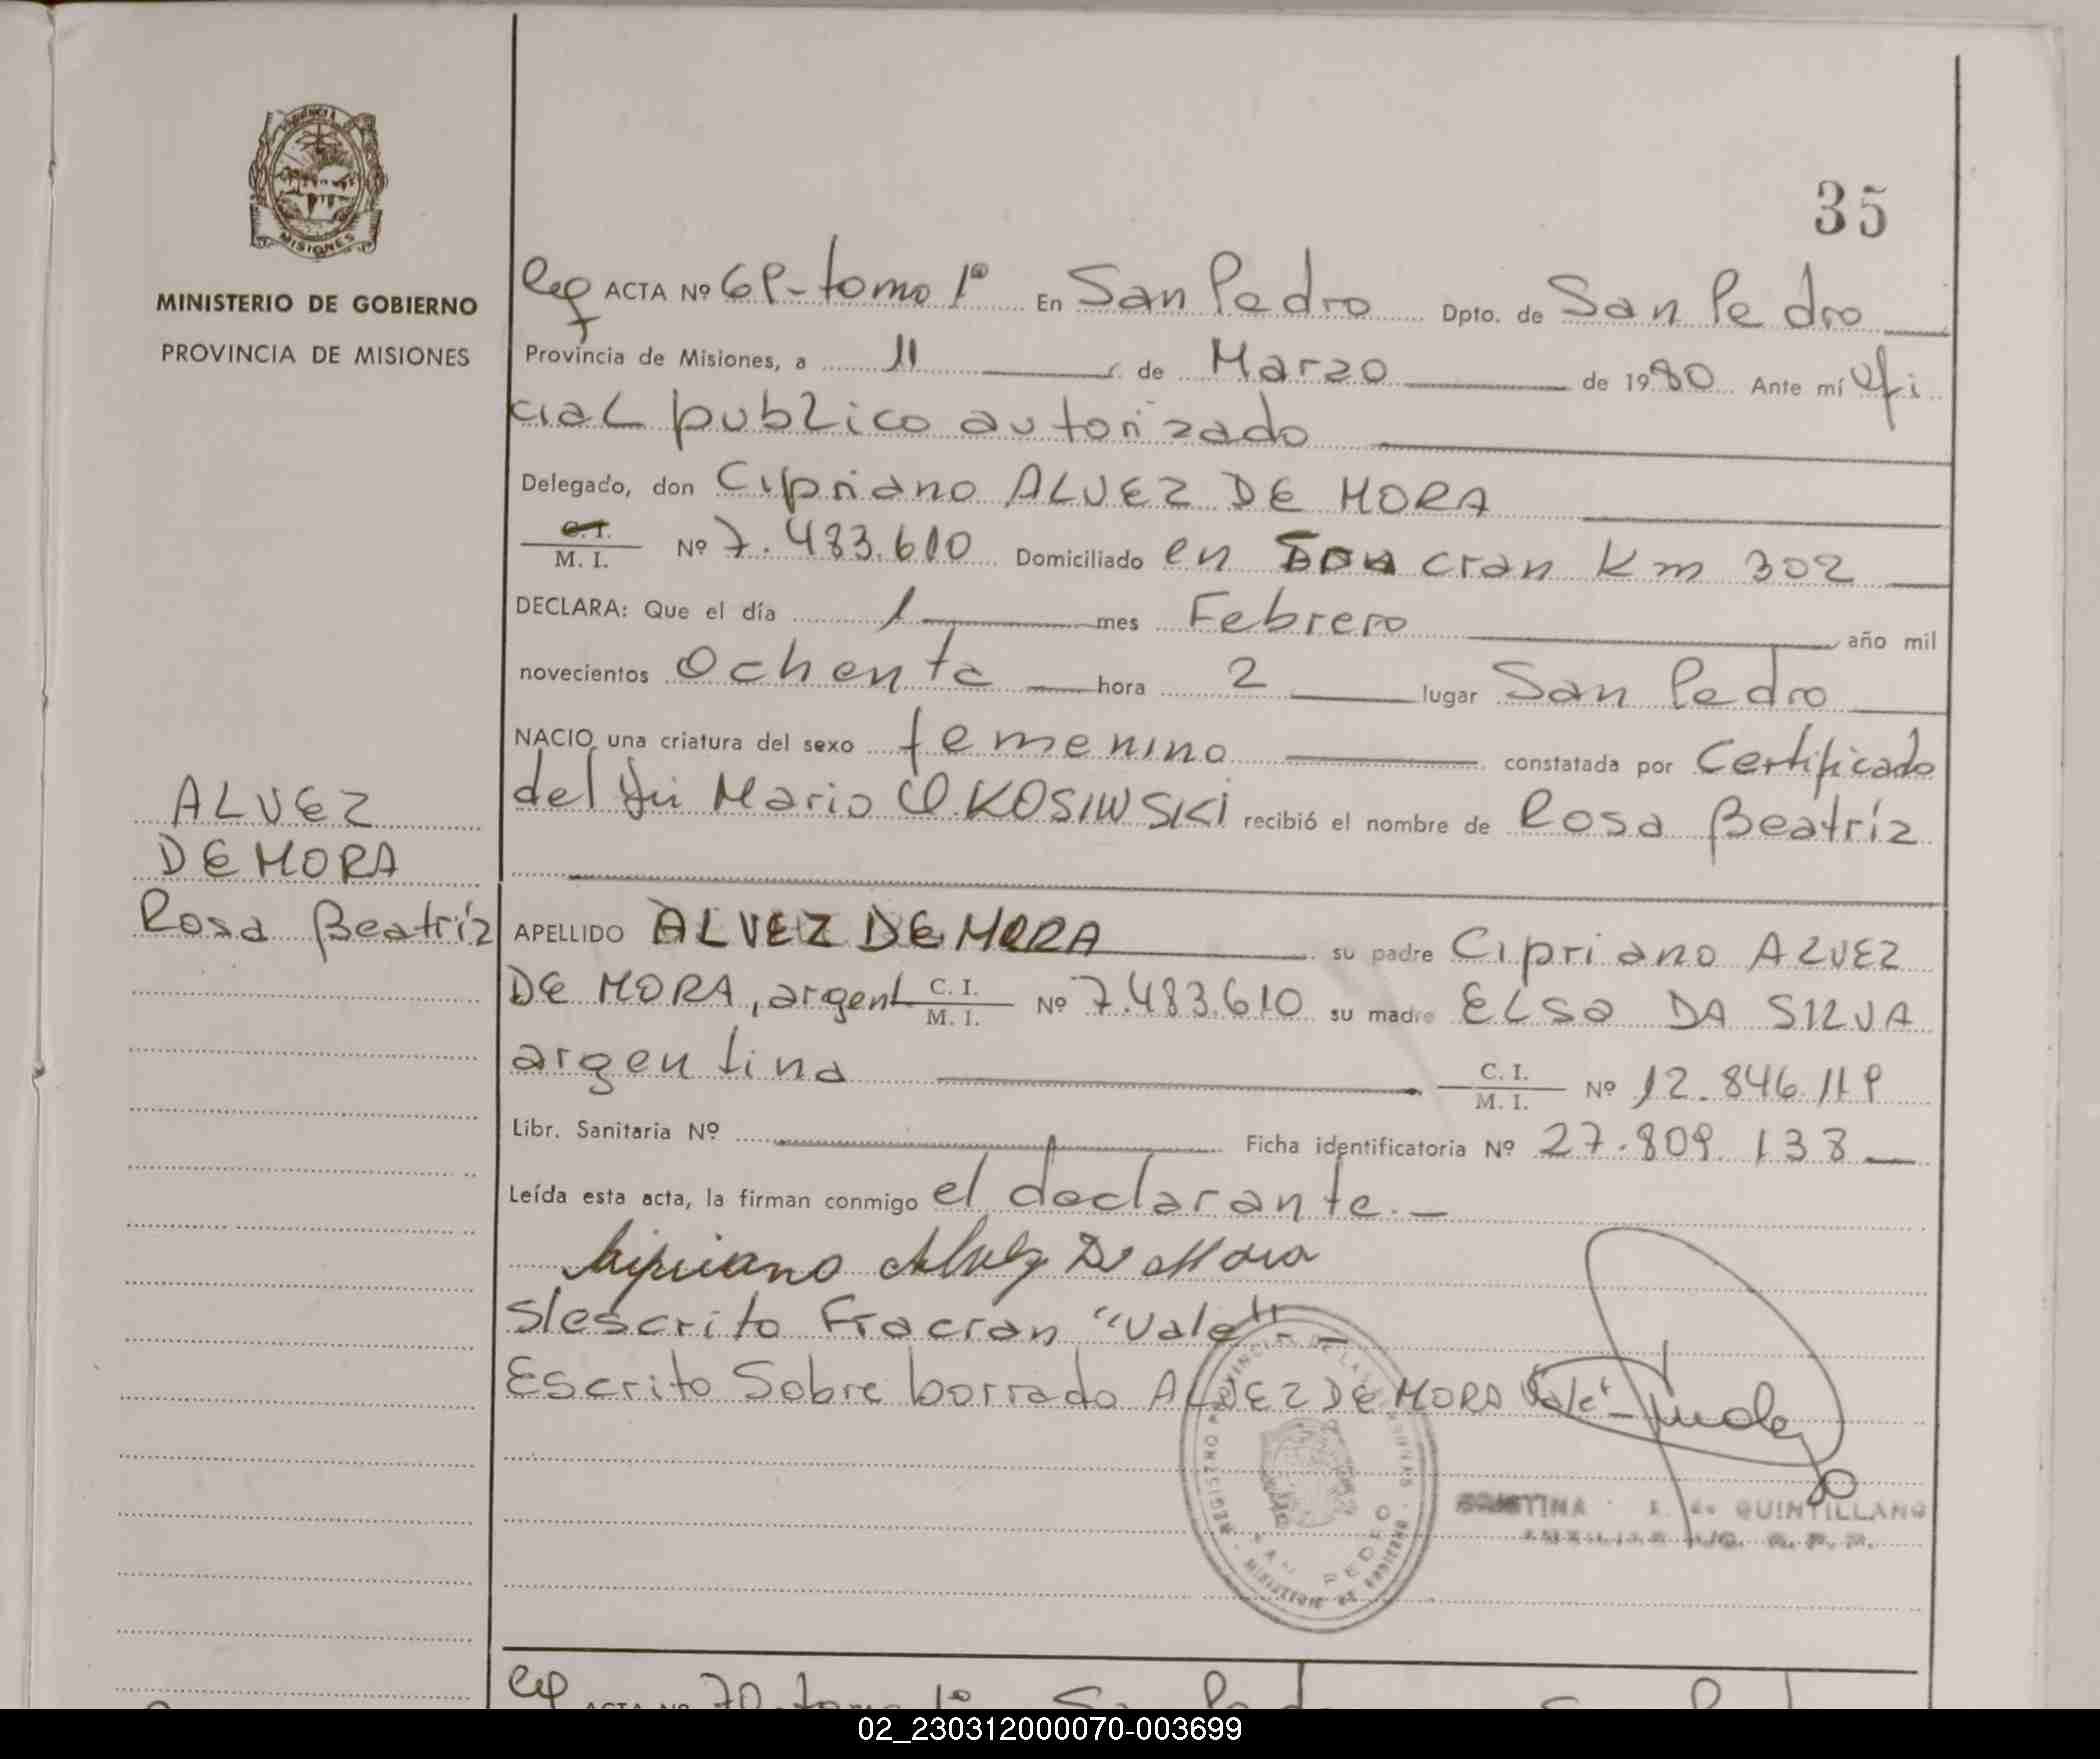 PROVINCIA
MISIONES
MINISTERIO DE GOBIERNO
PROVINCIA DE MISIONES
35
ACTA Nº 69-tomo 1º En San Pedro Dpto. de San Pedro
Provincia de Misiones, a 11 de Marzo de 1980 Ante mí ofi
cial publico autorizado
Delegado, don Cipriano ALVEZ DE MORA
C. I.
M. I. Nº 7.483.610 Domiciliado en cran Km 302
DECLARA: Que el día 1 mes Febrero año mil
novecientos ochenta hora 2 lugar San Pedro
NACIO una criatura del sexo femenino constatada por Certificado
del Mario O. KOSIWSKI recibió el nombre de Rosa Beatríz
ALVEZ
DE MORA
Rosa Beatríz
APELLIDO ALVEZ DE MORA su padre Cipriano ALVEZ
DE MORA, argent C. I. M. I. Nº 7.483.610 su madre ELSA DA SILVA
argentina C. I. M. I. Nº 12.846.119
Libr. Sanitaria Nº Ficha identificatoria Nº 27.809.138
Leída esta acta, la firman conmigo el declarante.-
Cipriano Alvez De Mora
S/escrito Fracran "Vale"-
Escrito Sobre borrado ALVEZ DE MORA Vale-
REGISTRO PROVINCIAL DE LAS PERSONAS
SAN PEDRO
MINISTERIO DE GOBIERNO
CRISTINA QUINTILLANO
ACTA Nº 70-tomo 1º
02_230312000070-003699